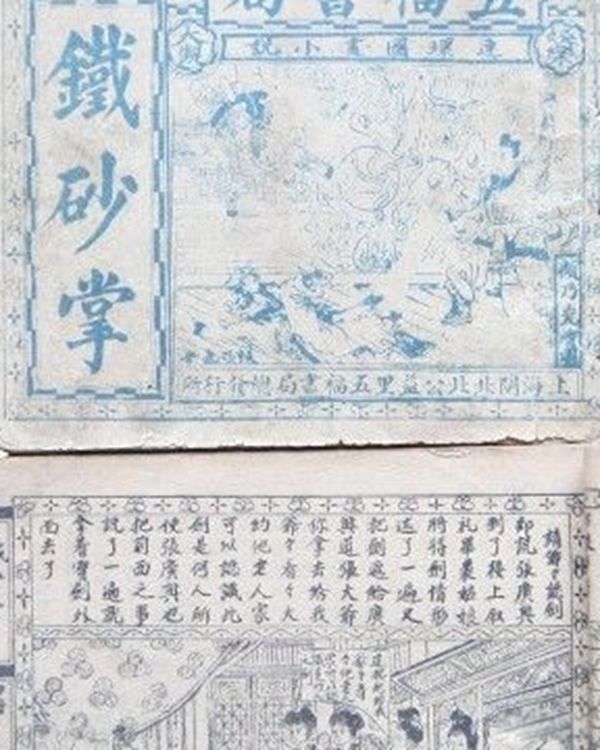 五福書局
連環圖畫小說
鐵砂掌
上海閘北北公益里五福書局總發行所
請爺々認劍
却說張廣興
到了樓上叙
礼畢裴姑娘
將得劍情形
述了一遍又
把劍遞給廣
興道張大爺
你拿去給我
爺々看々大
約他老人家
可以認識此
劍是何人所
使張廣興也
把前面之事
說了一遍就
拿着寶劍外
面去了